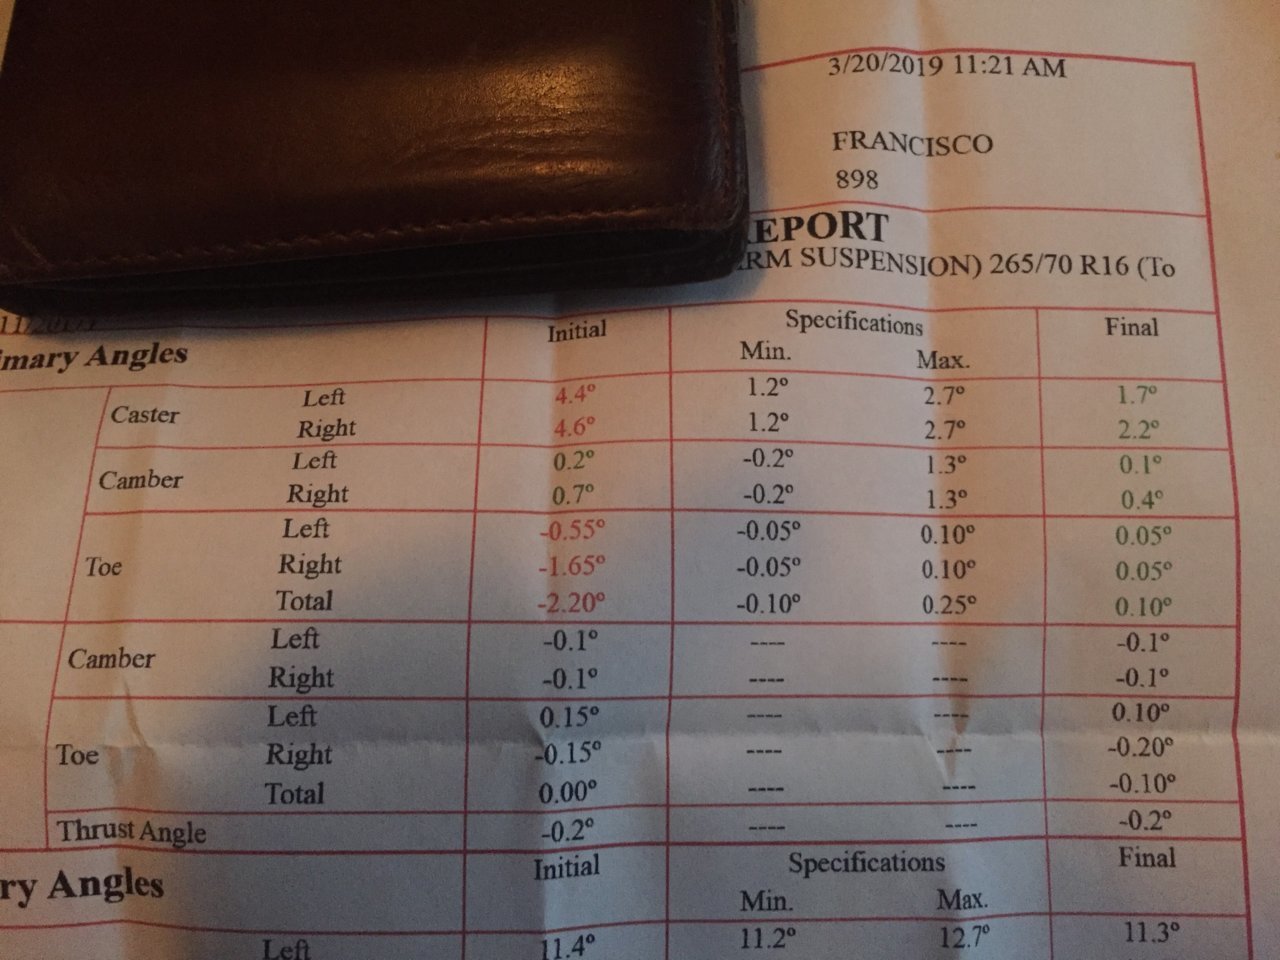 3/20/2019 11:21 AM
FRANCISCO
898
EPORT
RM SUSPENSION) 265/70 R16 (To
Initial Specifications Final
imary Angles Min. Max.
Caster Left 4.4° 1.2° 2.7° 1.7°
Right 4.6° 1.2° 2.7° 2.2°
Camber Left 0.2° -0.2° 1.3° 0.1°
Right 0.7° -0.2° 1.3° 0.4°
Left -0.55° -0.05° 0.10° 0.05°
Toe Right -1.65° -0.05° 0.10° 0.05°
Total -2.20° -0.10° 0.25° 0.10°
Camber Left -0.1° ---- ---- -0.1°
Right -0.1° ---- ---- -0.1°
Left 0.15° ---- ---- 0.10°
Toe Right -0.15° ---- ---- -0.20°
Total 0.00° ---- ---- -0.10°
Thrust Angle -0.2° ---- ---- -0.2°
Initial Specifications Final
ry Angles Min. Max.
Left 11.4° 11.2° 12.7° 11.3°